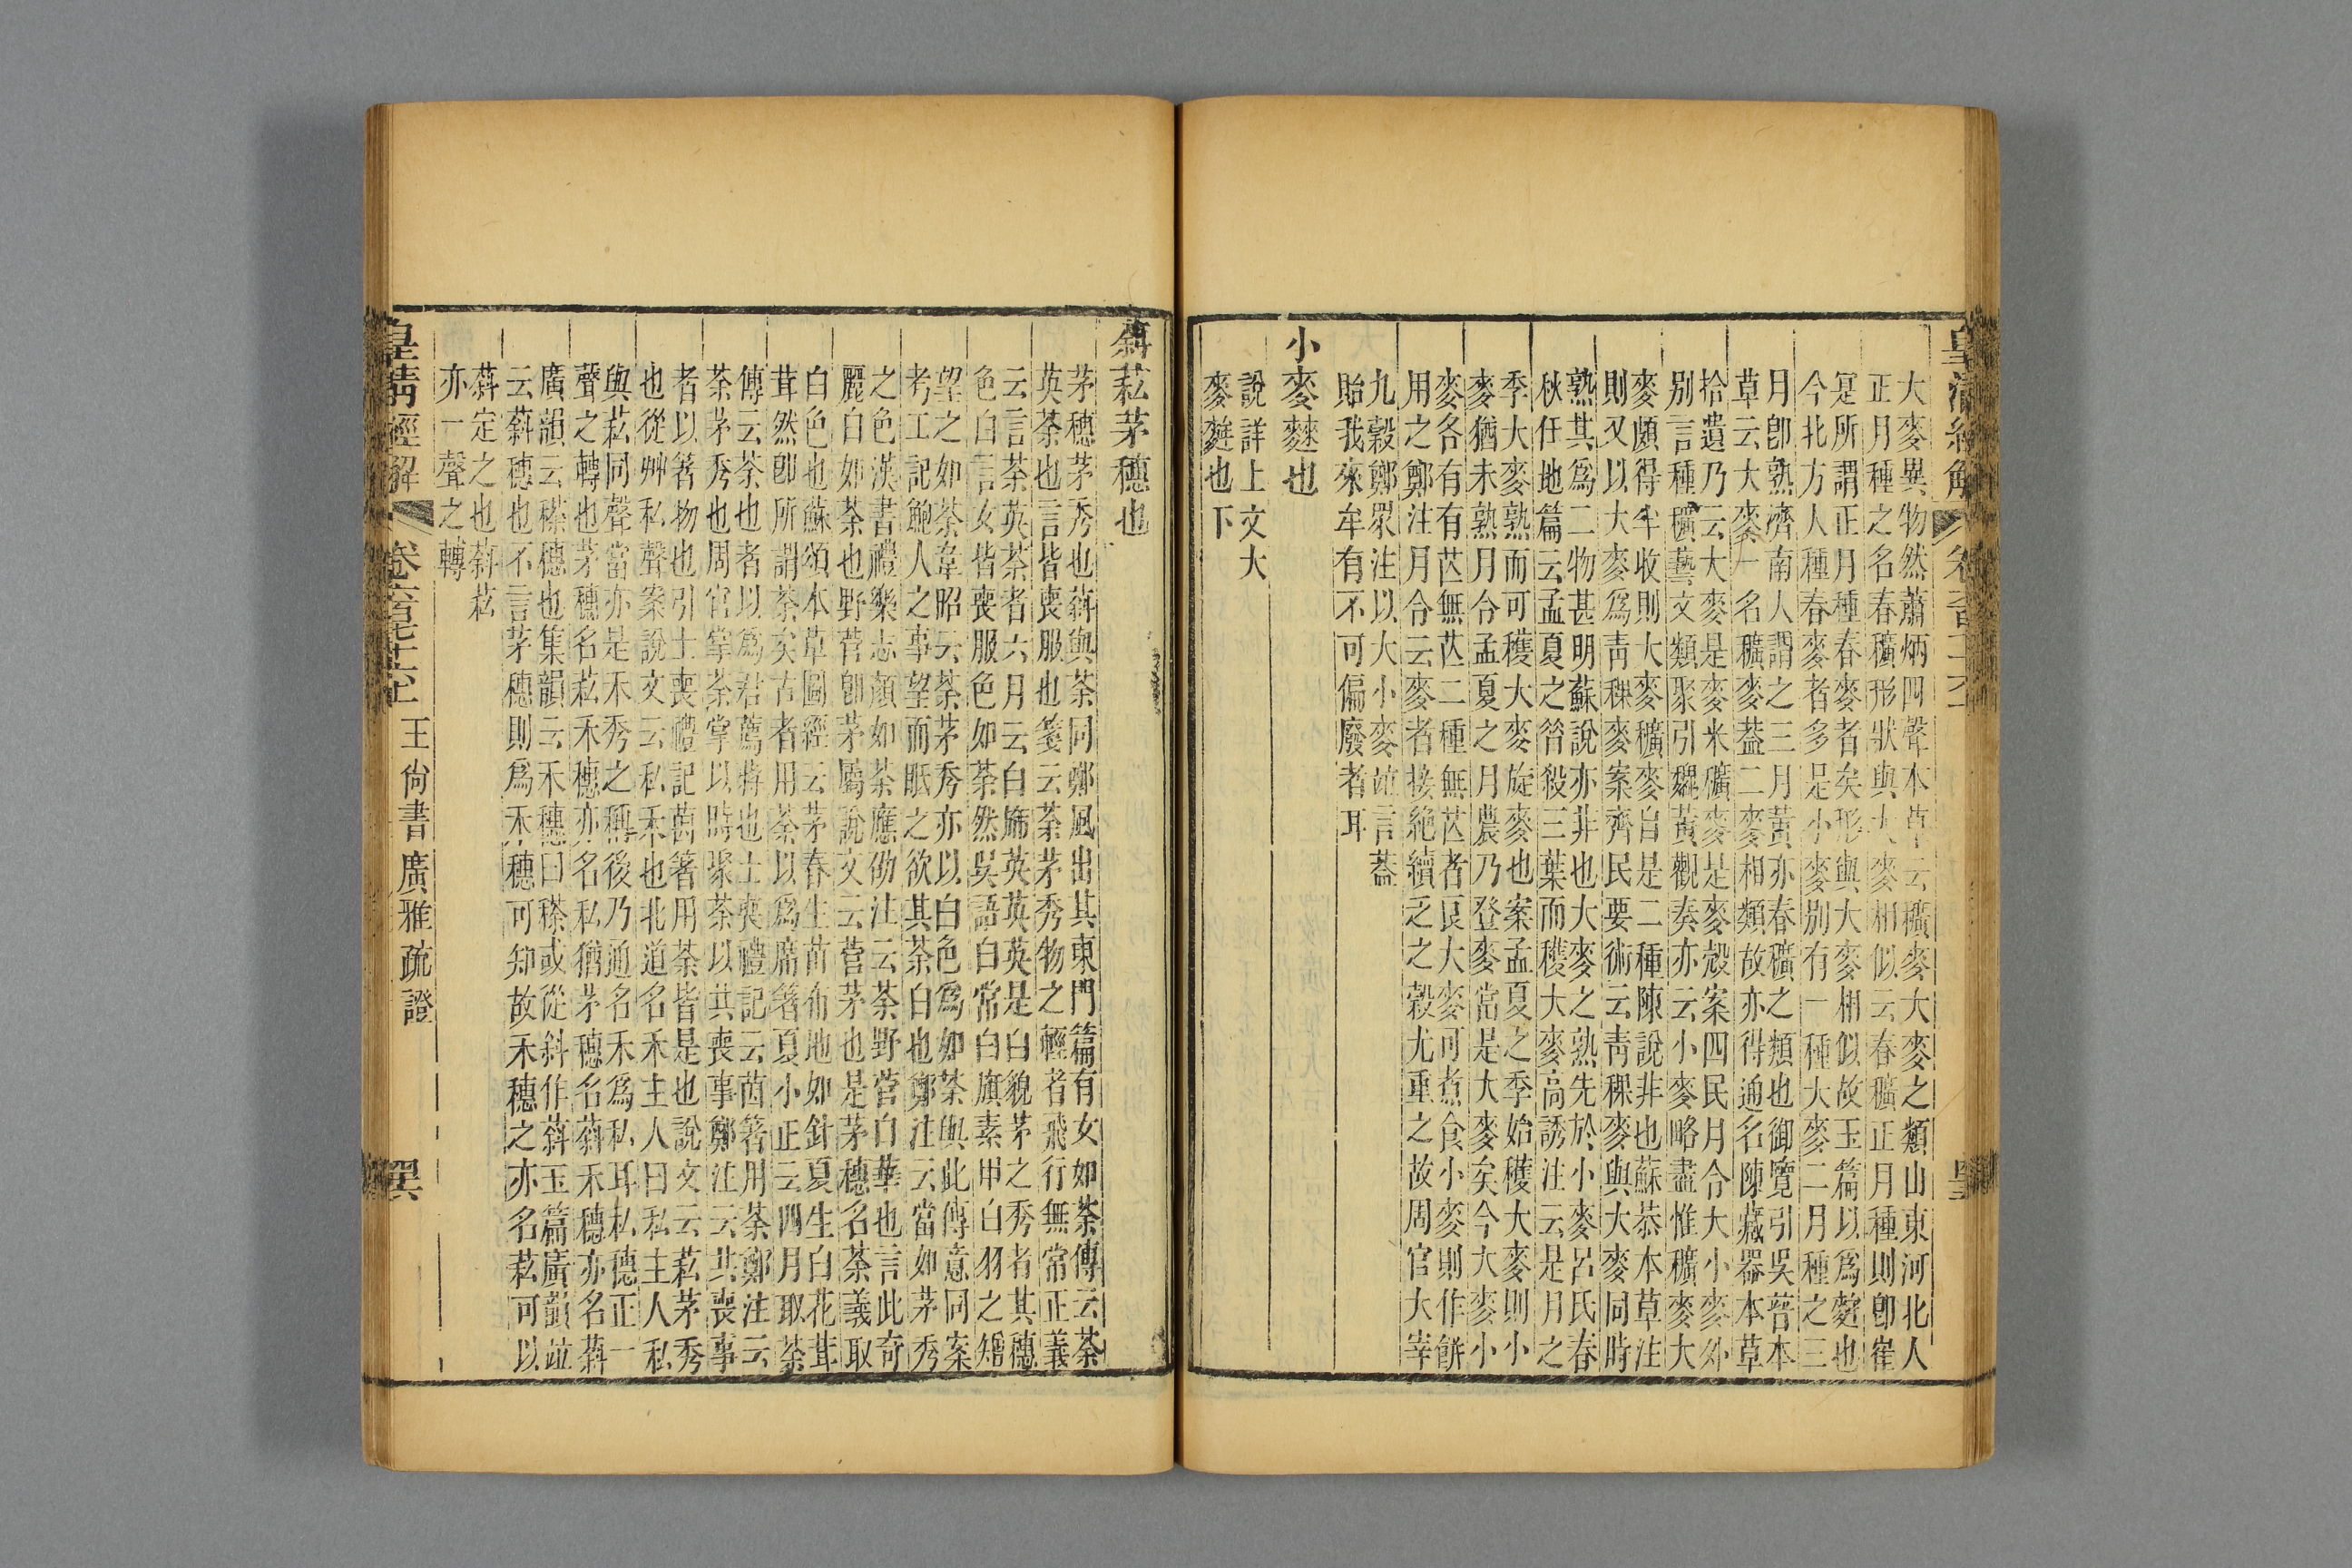 皇清經解
大麥異物然蕭炳四聲本草云穬麥大麥之類山東河北人
正月種之名春穬形狀與大麥相似云春穬正月種則卽崔
寔所謂正月種春麥者矣形與大麥相似故玉篇以爲𪍿也
今北方人種春麥者多是小麥別有一種大麥二月種之三
月卽熟濟南人謂之三月黃亦春穬之類也御覽引吳普本
草云大麥一名穬麥葢二麥相類故亦得通名陳藏器本草
拾遺乃云大麥是麥米礦麥是麥殼案四民月令大小麥外
别言種穬藝文類聚引魏黃觀奏亦云小麥略盡惟穬麥大
麥頗得半收則大麥穬麥自是二種陳說非也蘇恭本草注
則又以大麥爲靑稞麥案齊民要術云靑稞麥與大麥同時
熟其爲二物甚明蘇說亦非也大麥之熟先於小麥呂氏春
秋任地篇云孟夏之昝殺三葉而穫大麥高誘注云是月之
季大麥熟而可穫大麥旋麥也案孟夏之季始穫大麥則小
麥猶未熟月令孟夏之月農乃登麥當是大麥矣今大麥小
麥各有有芒無芒二種無芒者良大麥可煮食小麥則作餅
用之鄭注月令云麥者接絶續乏之穀尤重之故周官大宰
九穀鄭眾注以大小麥竝言葢
貽我來牟有不可偏廢者耳
小麥䅘也
說詳上文大
麥𪍿也下
䔑䓌茅穗也
茅穗茅秀也䔑與荼同鄭風出其東門篇有女如荼傳云荼
英荼也言皆喪服也箋云荼茅秀物之輕者飛行無常正義
云言荼英荼者六月云白旆英英英是白貌茅之秀者其穗
色白言女皆喪服色如荼然吳語白常白旗素甲白羽之矰
望之如荼韋昭云荼茅秀亦以白色爲如荼與此傳意同案
考工記鮑人之事望而眡之欲其荼白也鄭注云當如茅秀
之色漢書禮樂志顏如荼應劭注云荼野菅白華也言此奇
麗白如荼也野菅卽茅屬說文云菅茅也是茅穗名荼義取
白色也蘇頌本草圖經云茅春生苗布地如針夏生白花茸
茸然卽所謂荼矣古者用荼以爲席箸夏小正云四月取荼
傳云荼也者以爲君薦蔣也士喪禮記云茵箸用荼鄭注云
荼茅秀也周官掌荼掌以時聚荼以共喪事鄭注云共喪事
者以箸物也引士喪禮記茵箸用荼皆是也說文云䓌茅秀
也從艸私聲案說文云私禾也北道名禾主人曰私主人私
與䓌同聲當亦是禾秀之稱後乃通名禾爲私耳私穗正一
聲之轉也茅穗名䓌禾穗亦名私猶茅穗名䔑禾穗亦名䔑
廣韻云䅳穗也集韻云禾穗曰䅳或從斜作䔑玉篇廣韻竝
云䔑穗也不言茅穗則爲禾穗可知故禾穗之亦名䓌可以
䔑定之也䔑䓌
亦一聲之轉
皇淸經解 卷六百六十七上 王尙書廣雅疏證